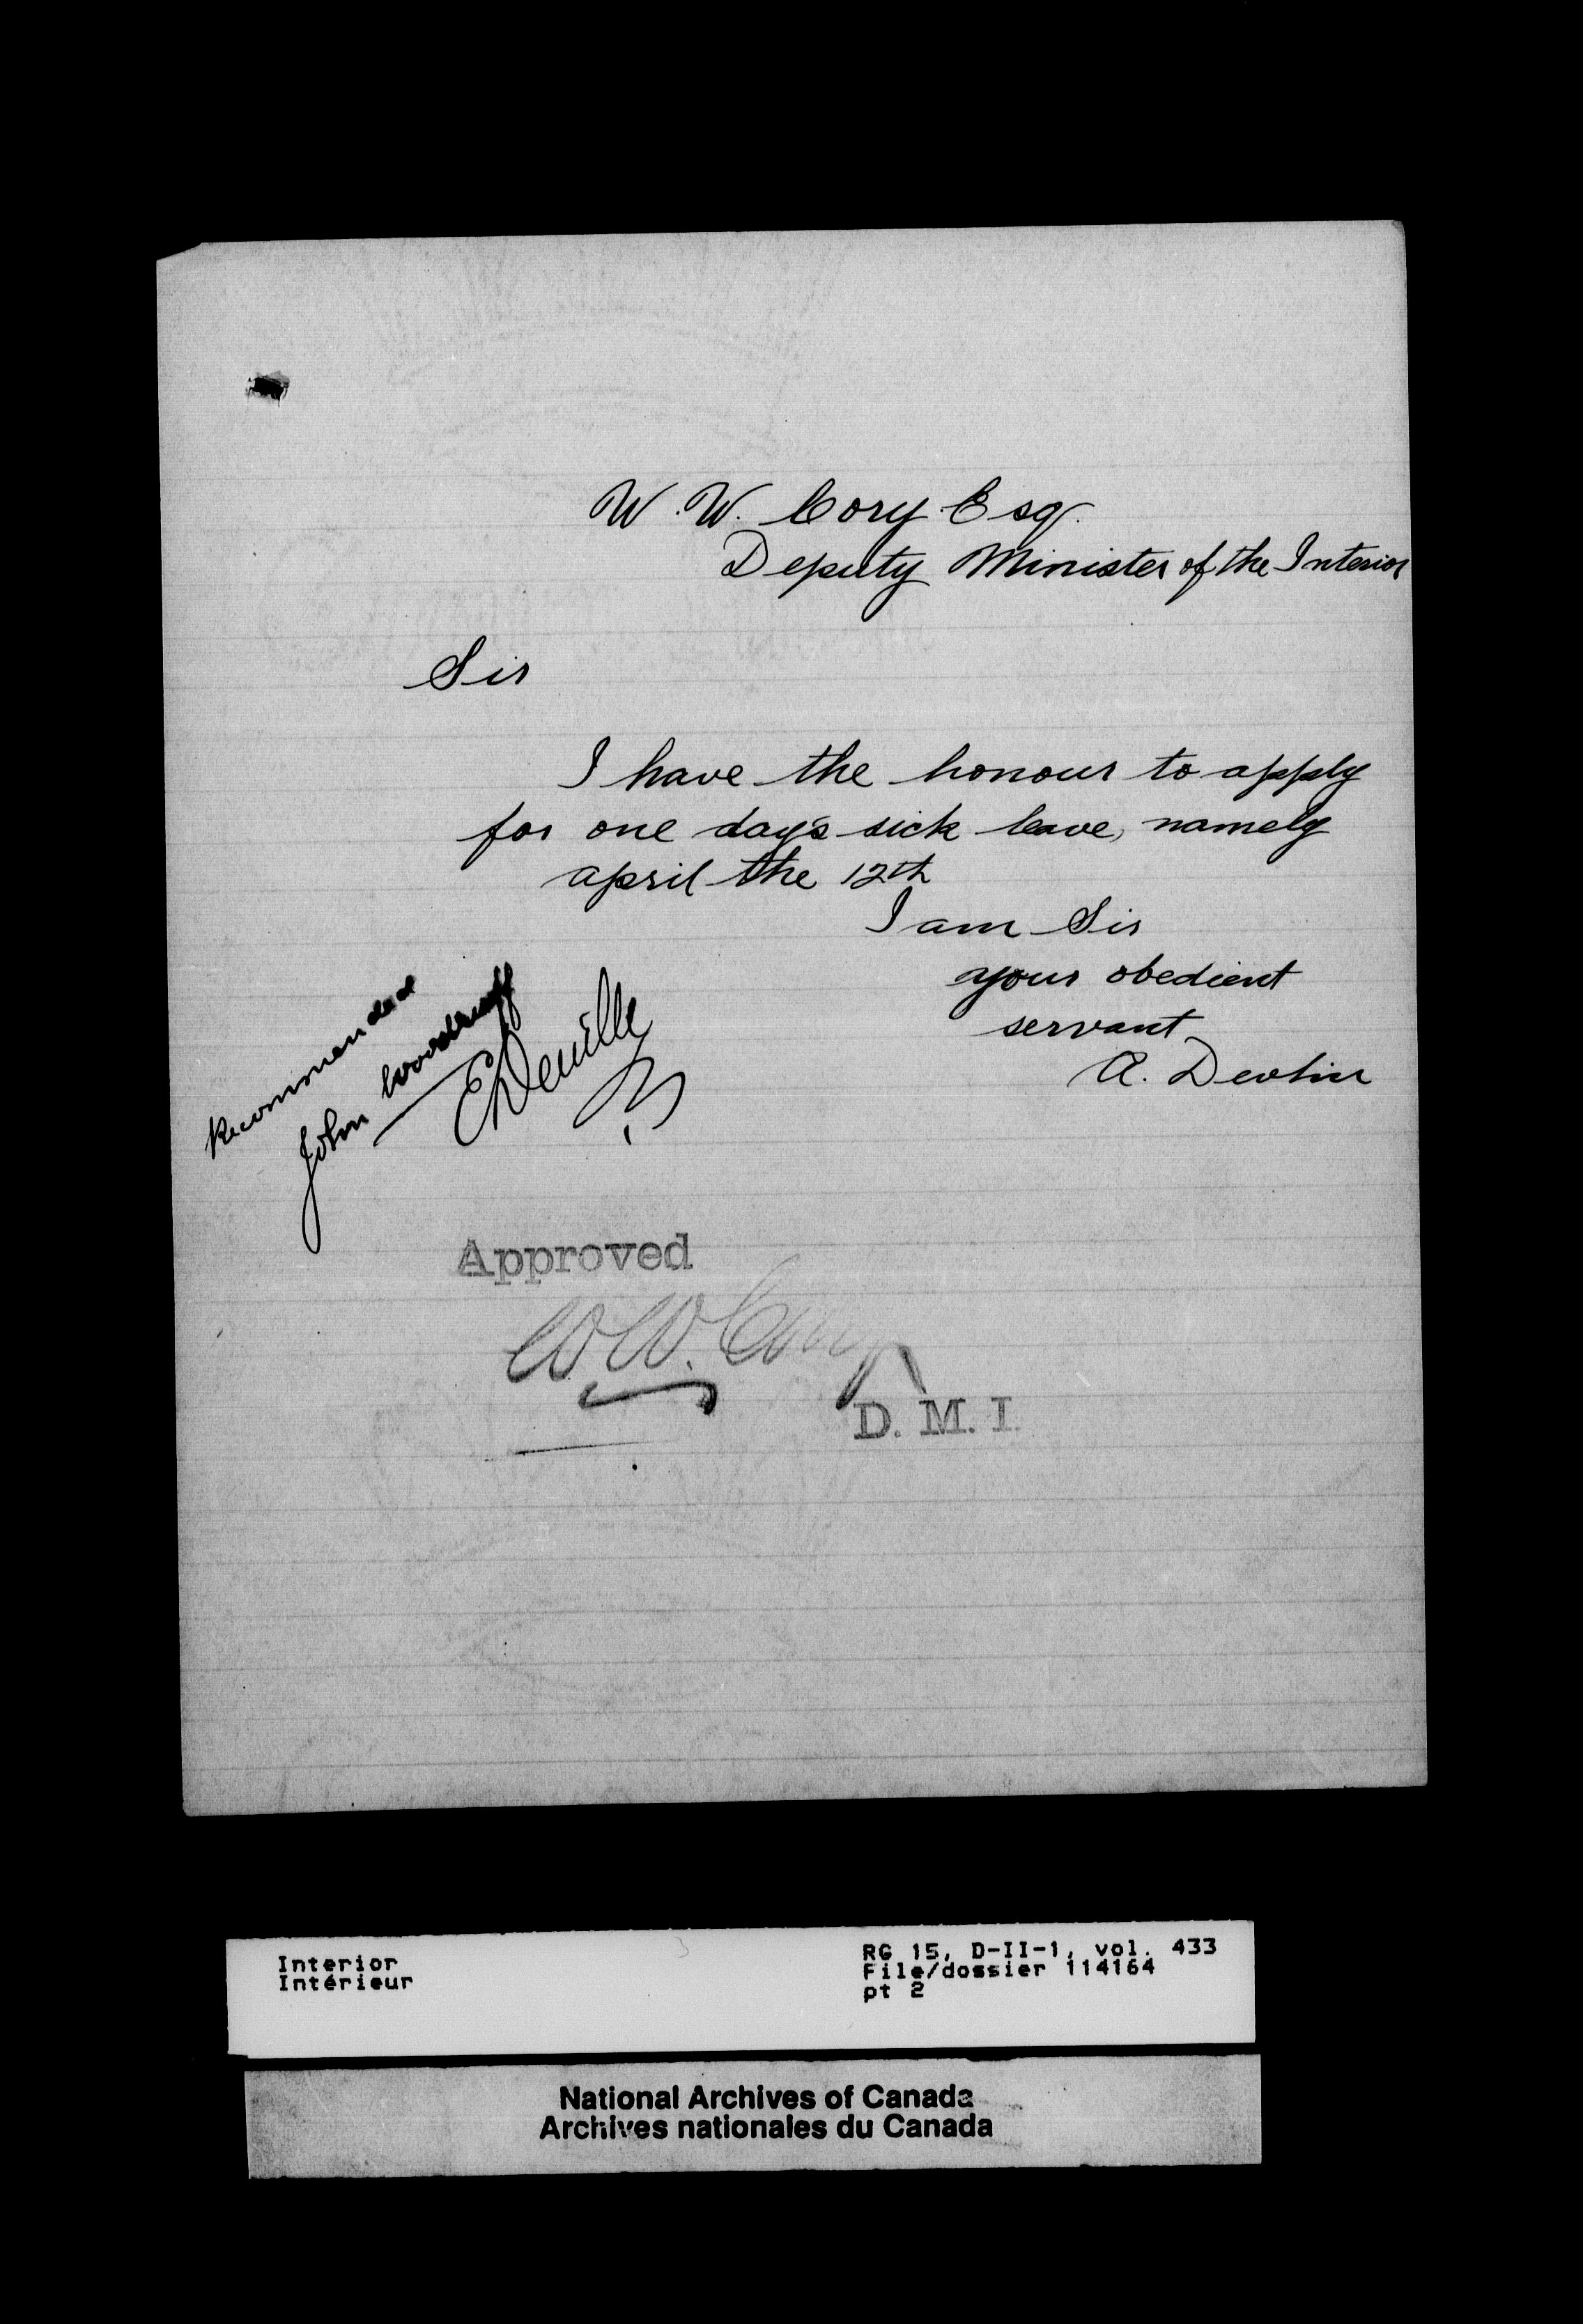 W. W. Cory Esq.
Deputy Minister of the Interior
Sir
I have the honour to apply
for one day's sick leave, namely
april the 12th
I am Sir
your obedient
servant
A. Devlin
Recommended
John Woodruff
E Deville
Approved
W.W. Cory
D. M. I.
Interior
Intérieur
3
RG 15, D-II-1, vol. 433
File/dossier 114164
pt 2
National Archives of Canada
Archives nationales du Canada